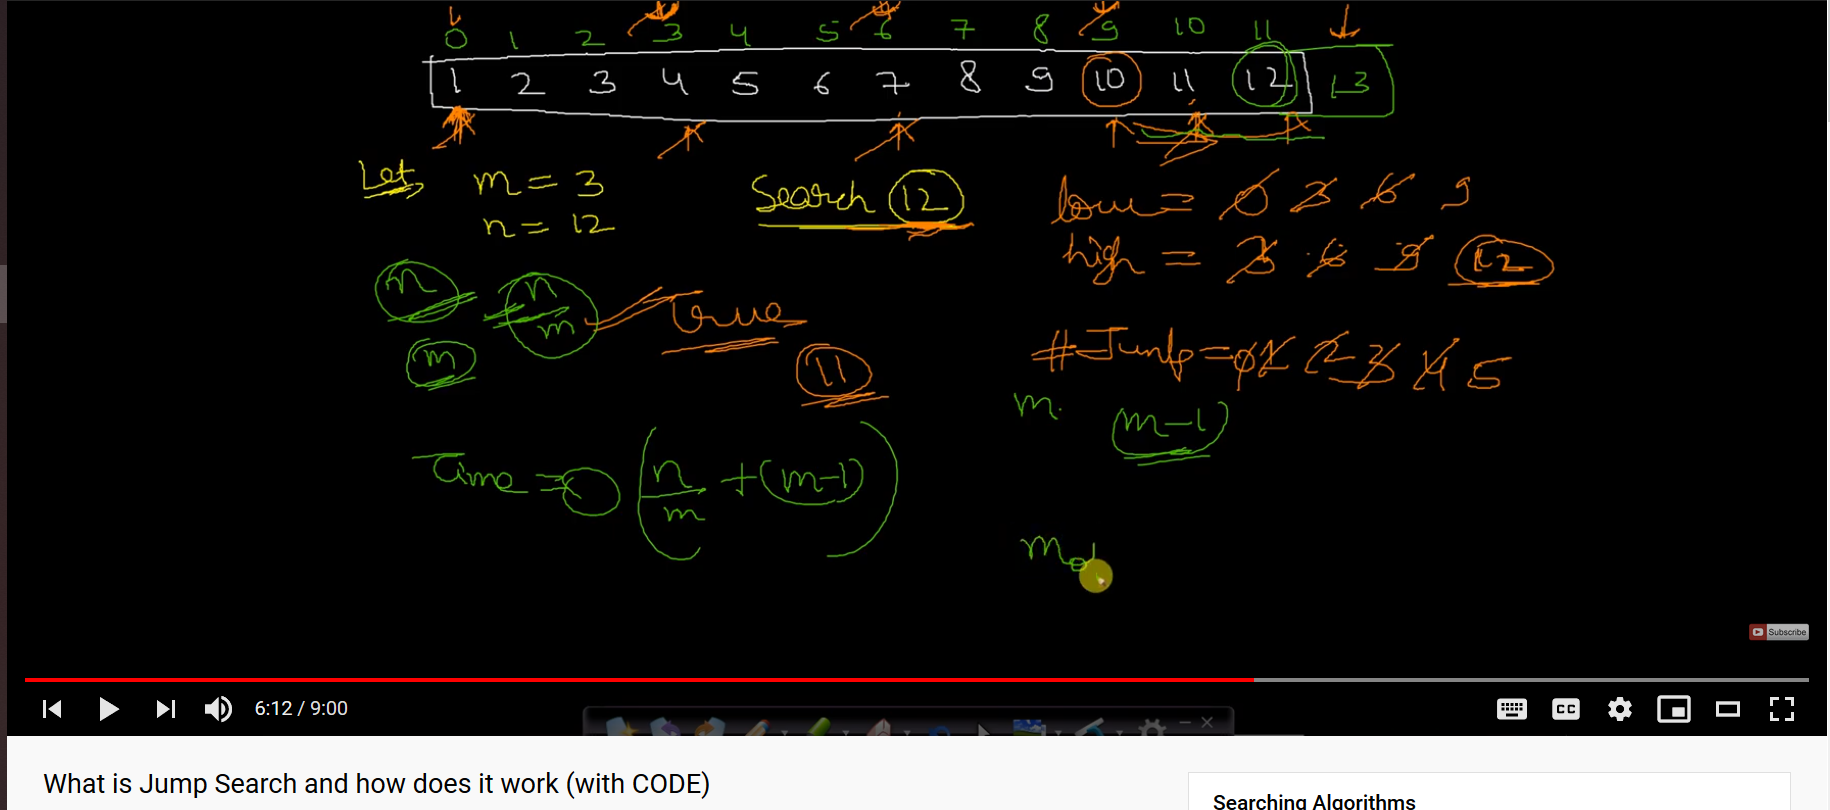 0 1 2 3 4 5 6 7 8 9 10 11
1 2 3 4 5 6 7 8 9 10 11 12 13
Let m = 3
n = 12
Search 12
low = 0 3 6 9
high = 3 6 9 12
n n/m True
m
11
#Jump = 0 1 2 3 4 5
m. (m-1)
Time = O (n/m + (m-1))
m
Subscribe
6:12 / 9:00
CC
What is Jump Search and how does it work (with CODE)
Searching Algorithms